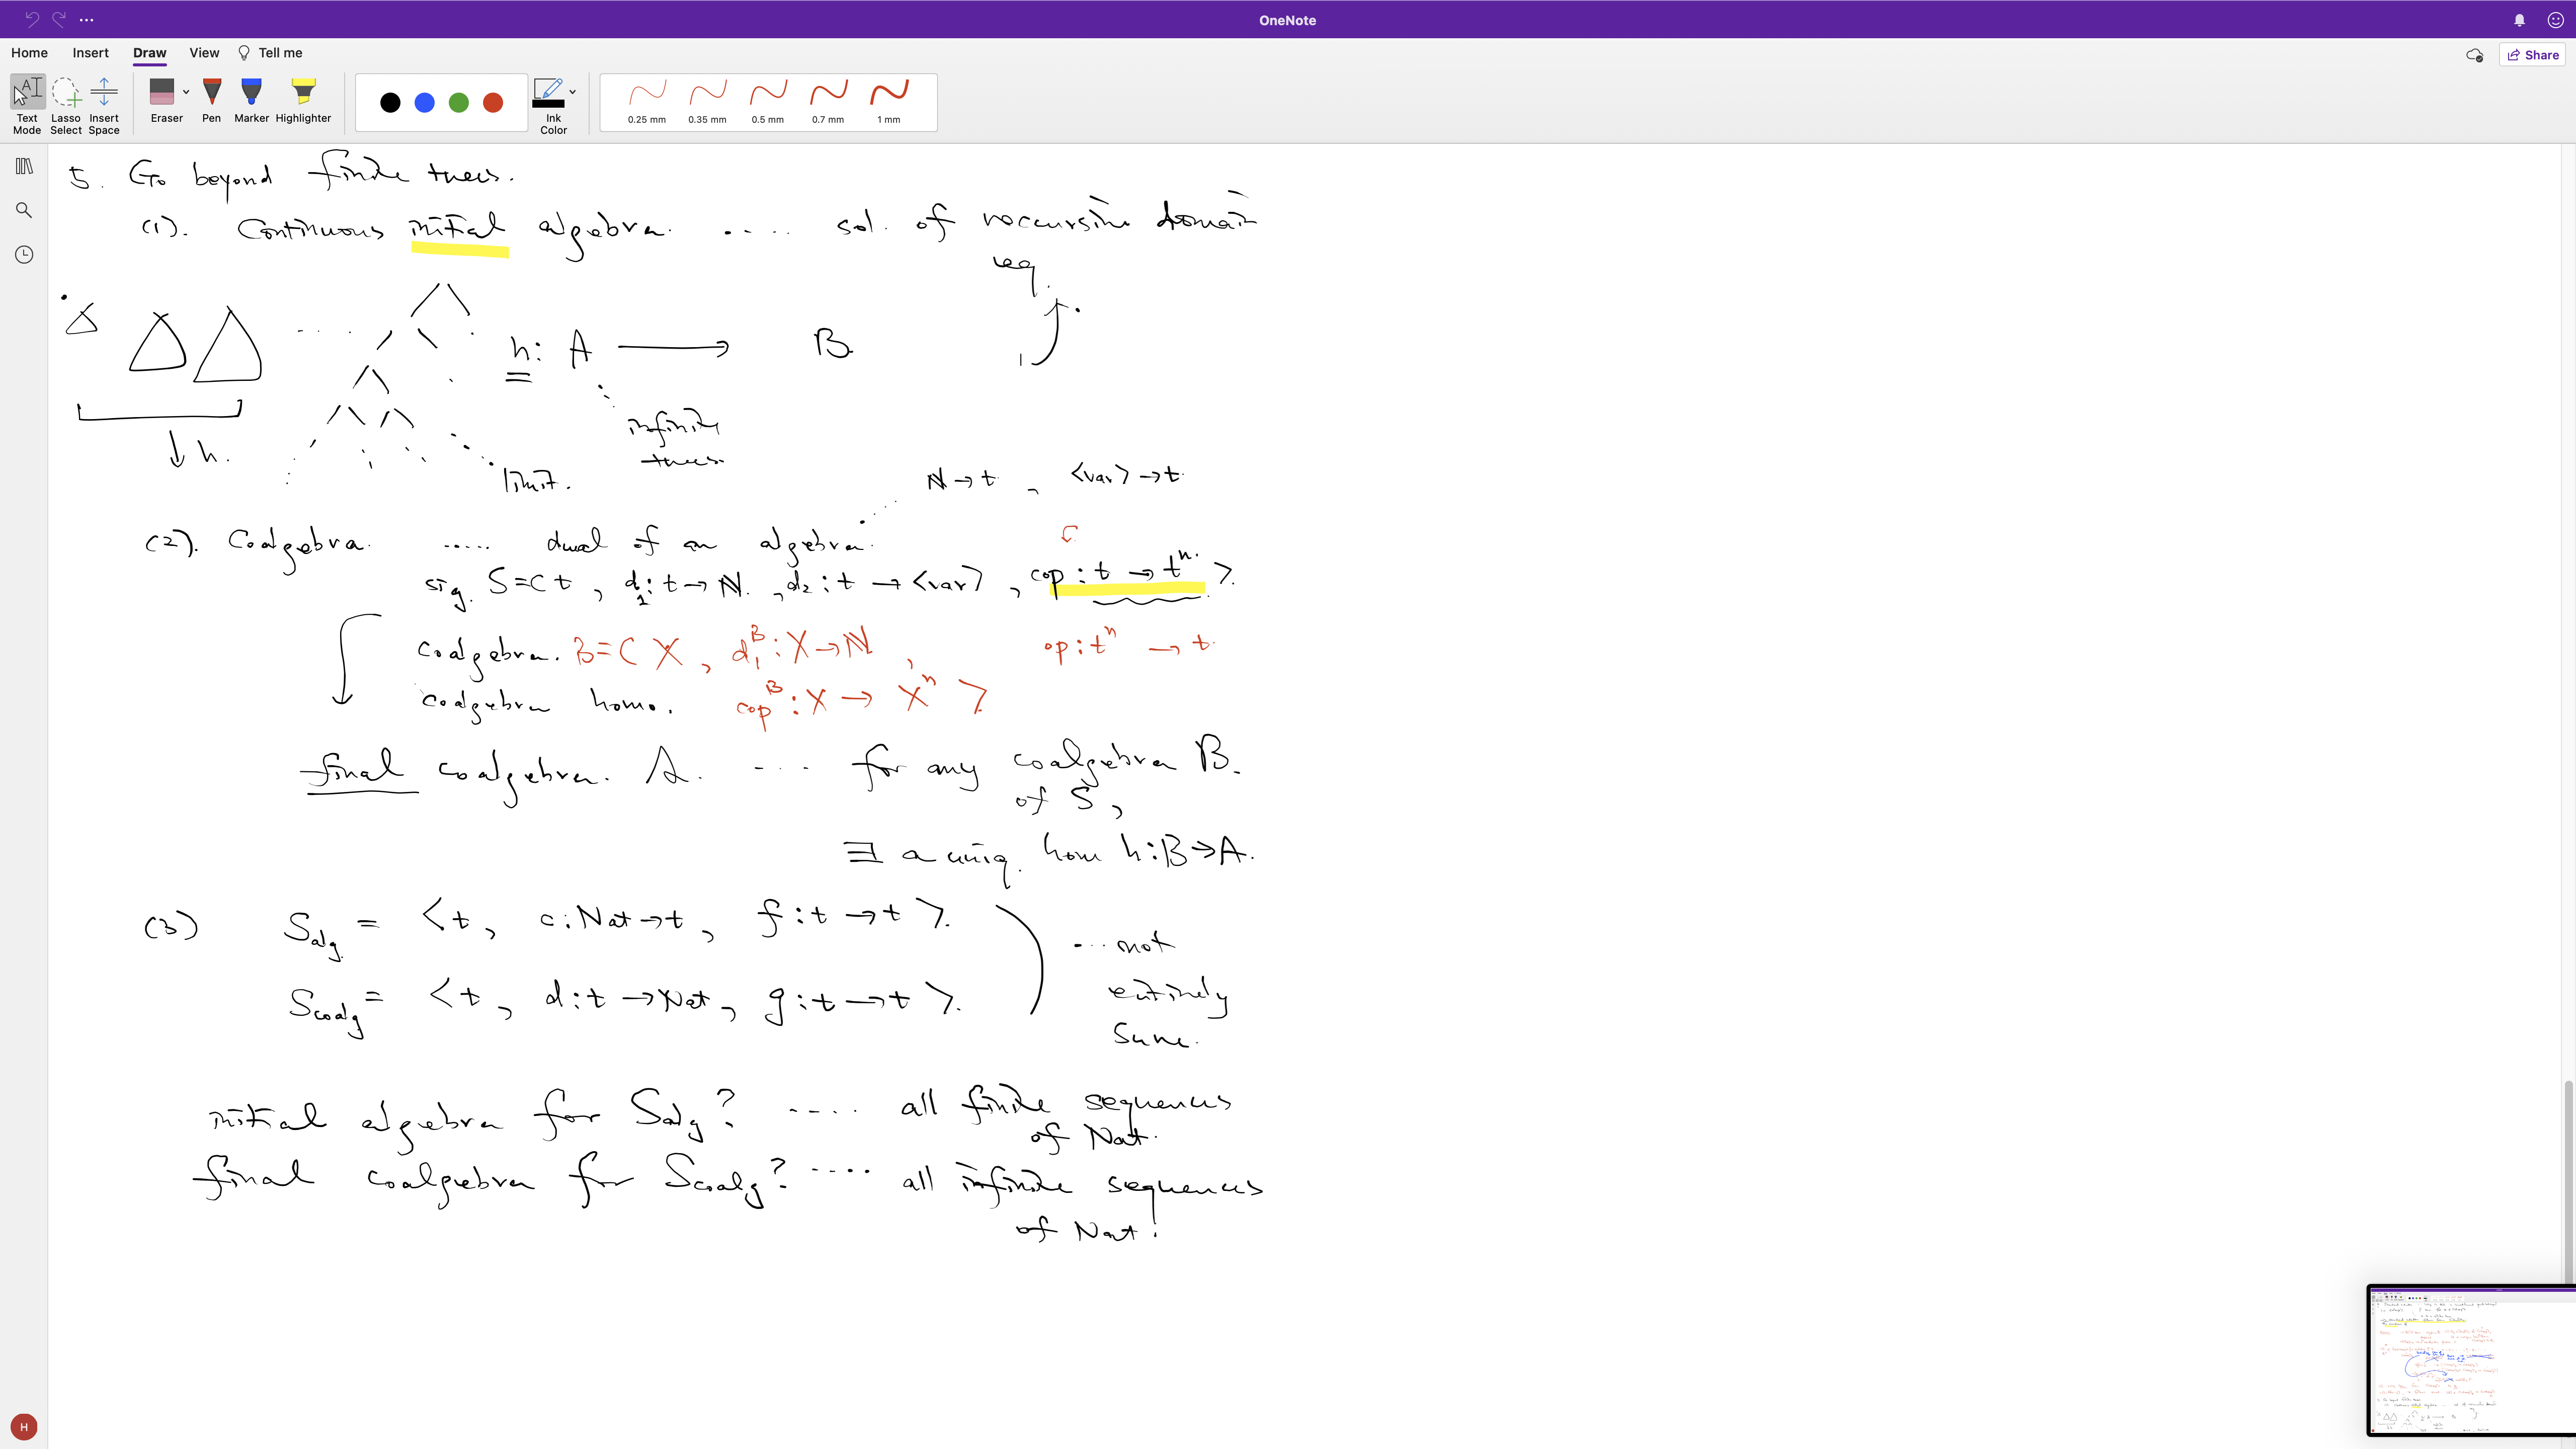 OneNote
Home Insert Draw View Tell me
Share
Text Mode
Lasso Select
Insert Space
Eraser
Pen
Marker
Highlighter
Ink Color
0.25 mm
0.35 mm
0.5 mm
0.7 mm
1 mm
5. Go beyond finite trees.
(1). Continuous initial algebra. .... sol. of recursive domain
eq.
h: A → B
infinite
trees
↓ h.
limit.
N → t , <var> → t
(2). Coalgebra. ..... dual of an algebra.
sig. S = < t , d1 : t → N , d2 : t → <var> , cop : t → tⁿ >
coalgebra. B = < X , d1ᴮ : X → N ,
op : tⁿ → t.
coalgebra homo. copᴮ : X → Xⁿ >
final coalgebra. A. ... for any coalgebra B.
of S,
∃ a uniq. hom h : B → A.
(3) Salg = < t, c : Nat → t, f : t → t >.
Scoalg = < t, d : t → Nat, g : t → t >.
... not
entirely
same.
initial algebra for Salg? .... all finite sequences
of Nat.
final coalgebra for Scoalg? .... all infinite sequences
of Nat.
H